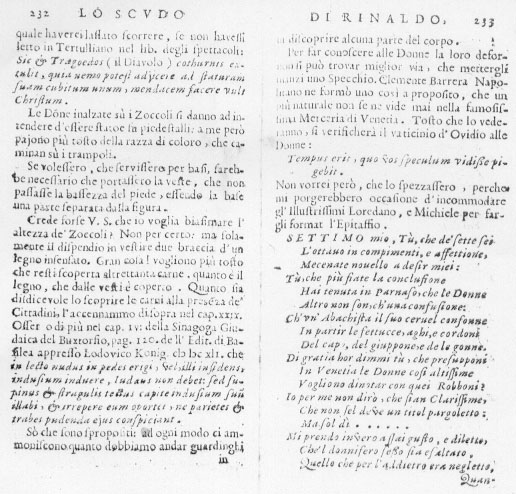 232 LO SCVDO
quale haverei lassato scorrere, se non havessi
letto in Tertulliano nel lib. degli spettacoli:
Sic & Tragoedos (il Diavolo) cothurnis ex-
tulit, quia nemo potest adjicere ad staturam
suam cubitum unum, mendacem facere vult
Christum.
Le Dõne inalzate sù i Zoccoli si danno ad in-
tendere d'essere statoe in piedestalli: a me però
pajono più tosto della razza di coloro, che ca-
minan sù i trampoli.
Se volessero, che servissero per basi, sareb-
be necessario che portassero la veste, che non
passasse la bassezza del piede, essendo la base
una parte separata dalla figura.
Crede forse V. S. che io voglia biasimare l'
altezza de' Zoccoli? Non per certo: ma sola-
mente il dispendio in vestire due braccia d'un
legno insensato. Gran cosa! vogliono più tosto
che resti scoperta altrettanta carne, quanto è il
legno, che dalle vesti è coperto. Quanto sia
disdicevole lo scoprire le carni alla presẽza de'
Cittadini, l'accennammo disopra nel cap. XXIX.
Osser. o di più nel cap. IV. della Sinagoga Giu-
daica del Buxtorfio, pag. 120. dell' Edit. di Ba-
silea appresso Lodovico Konig. cIɔ Iɔc XLI. che
in lecto nudus in pedes erigi, vel illi insidens,
indusium induere, Iudæus non debet: sed su-
pinus & stragulis tectus capite indusium suũ
illabi, & irrepere eum oportet, ne parietes &
trabes pudenda ejus conspiciant.
Sò che sono spropositi: ad ogni modo ci am-
moniscono quanto dobbiamo andar guardinghi
in
DI RINALDO. 233
di discoprire alcuna parte del corpo.
Per far conoscere alle Donne la loro defor-
si può trovar miglior via, che mettergli
nanzi uno Specchio. Clemente Barrera Napo-
litano ne formò uno così a proposito, che un
più naturale non se ne vide mai nella famosis-
sima Merceria di Venetia. Tosto che lo vede-
ranno, si verificherà il vaticinio d'Ovidio alle
Donne:
Tempus erit, quo vos speculum vidisse pi-
gebit.
Non vorrei però, che lo spezzassero, perche
mi porgerebbero occasione d'incommodare
gl' Illustrissimi Loredano, e Michiele per far-
gli format l'Epitaffio.
SETTIMO mio, Tù, che de' sette sei
L'ottavo in compimenti, e affettione,
Mecenate novello a desir miei:
Tù, che più fiate la conclusione
Hai tenuta in Parnaso, che le Donne
Altro non son, ch'una confusione:
Ch'un' Abachista il suo cervel confonne
In partir le fettucce, aghi, e cordoni
Del capo, del giuppone, e de le gonne.
Di gratia hor dimmi tù, che presuponi
In Venetia le Donne così altissime
Vogliono dinotar con quei Robboni?
Io per me non dirò, che sian Clarissime,
Che non sel deve un titol pargoletto:
Ma sol di - - - - - -
Mi prendo invero assai gusto, e diletto,
Che'l donnesco sesso sia esaltato.
Quello che per l'addietro era negletto,
Quan-